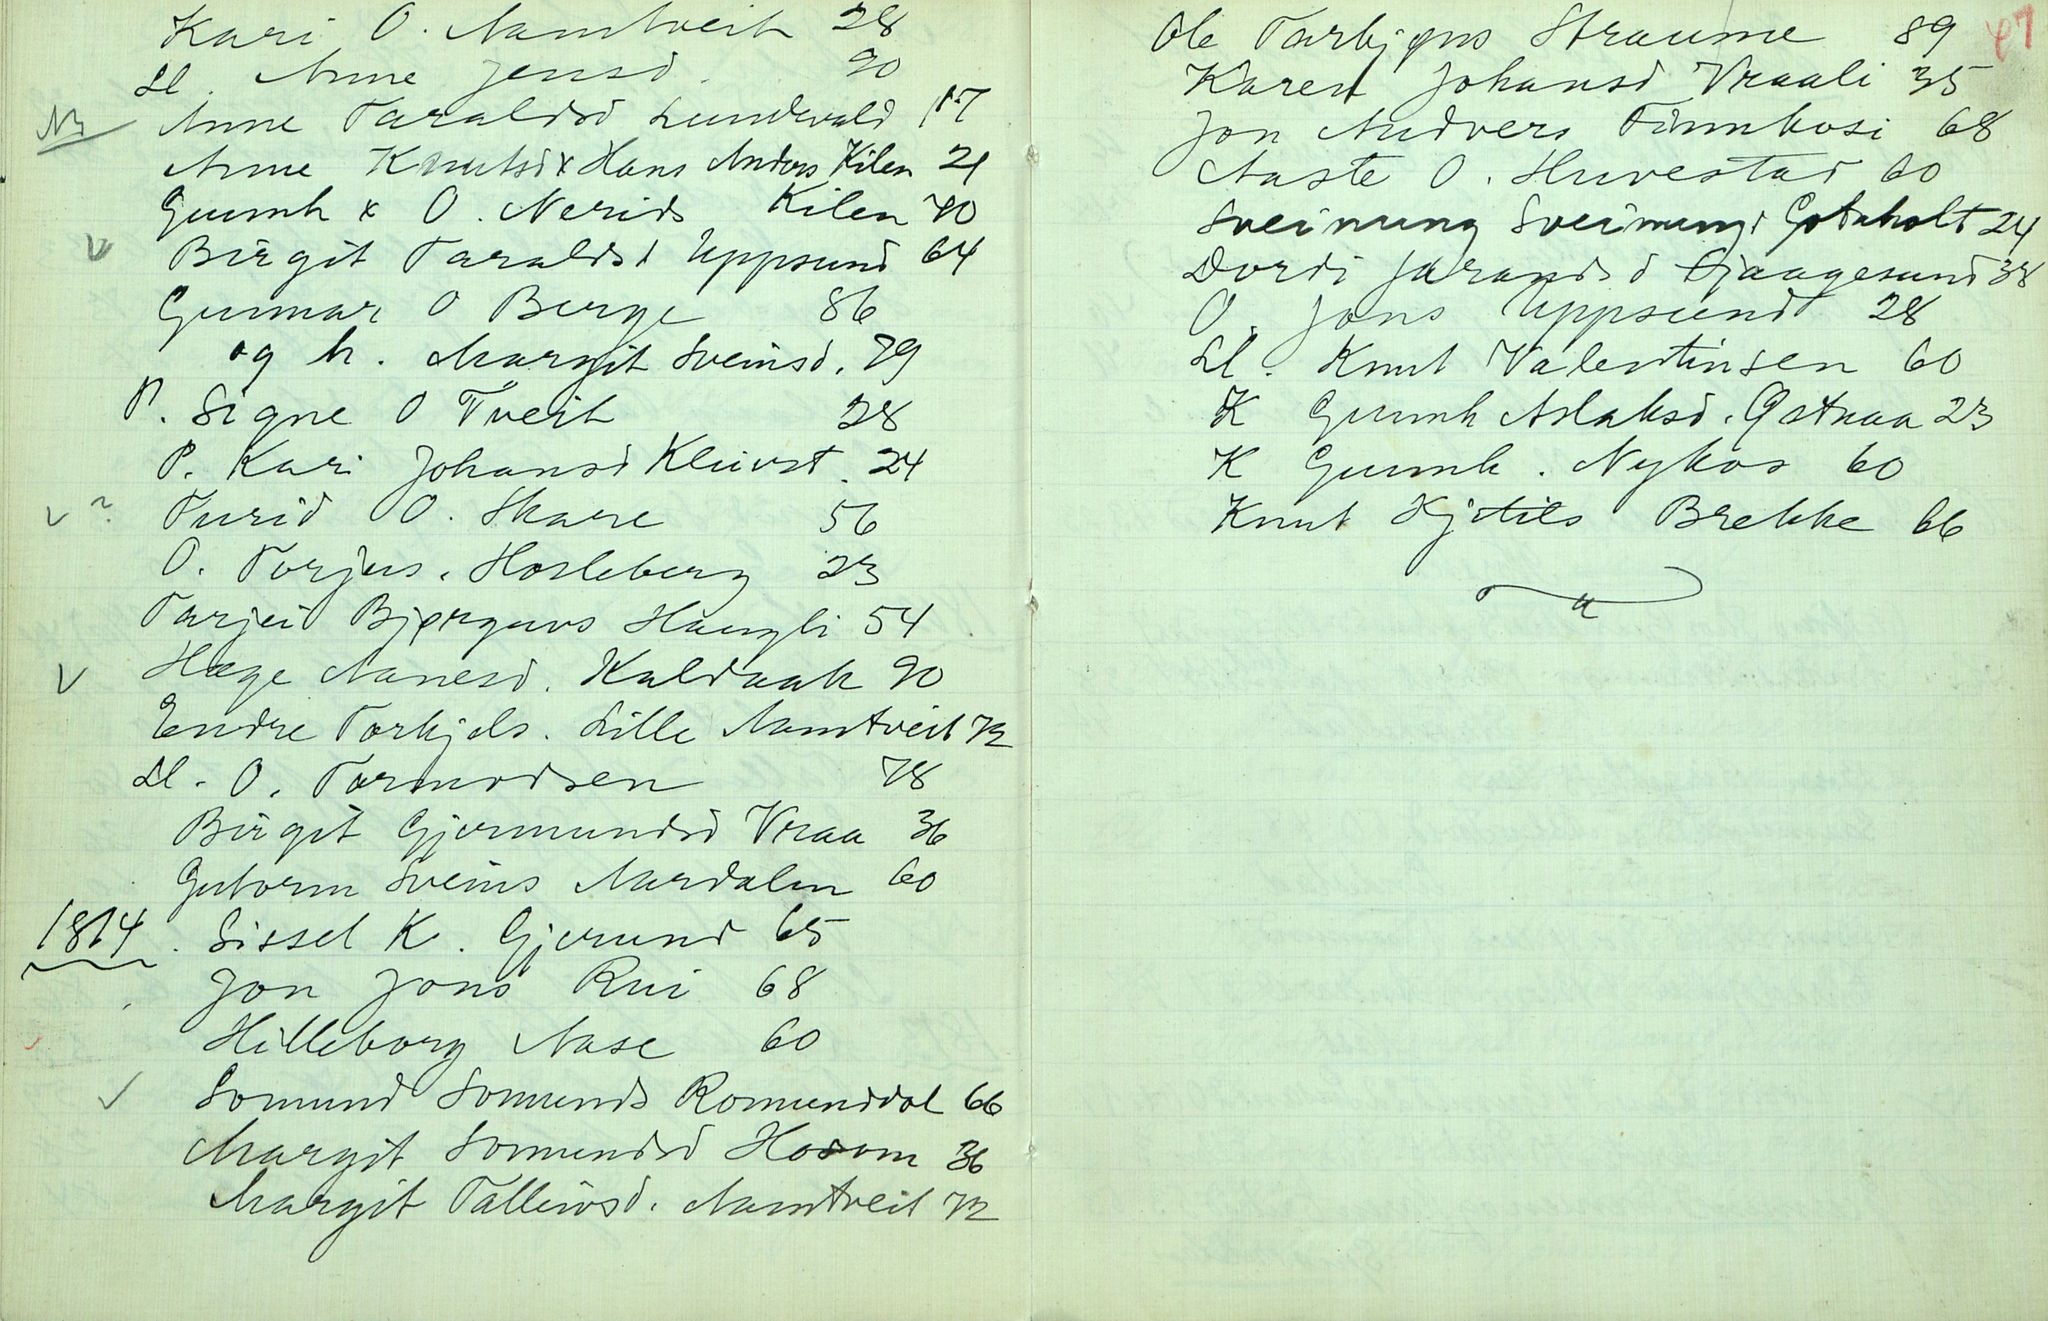 Kari O. Namtveit 28
Ll. Anne Jensd. 90
NB Anne Taraldsd Lundevald 17
Anne Knutsd x Hans Anders Kilen 21
Gunnh x O. Nerids Kilen 70
v Birgit Taraldsd Uppsund 64
Gunnar O Berge 86
og k. Margit Sveinsd. 79
P. Signe O Tveit 28
P. Kari Johansd Kleivst. 24
v ? Turid O. Skare 56
O. Torjus. Hasleberg 23
Tarjei Bjørguvs Haugli 54
v Hæge Aanesd. Kaldaak 90
Endre Torkjels. Lille Namtveit 72
Ll. O. Tormodsen 78
Birgit Gjermundsd Vraa 36
Gutorm Sveins Aardalen 60
1814. Sissel K. Gjerund 65
Jon Jons Rui 68
Hilleborg Aase 60
v Somund Somunds Romunddal 66
Margit Somundsd Hosom 36
Margit Tallivsd. Namtveit 72
47
Ole Tarkjøns Straume 89
Karen Johansd Vraali 35
Jon Audvers Finnkosi 68
Aaste O. Huvestad 60
Sveinung Sveinungs Gotuholt 24
Dordi Jarandsd Fjaagesund 38
O. Jons Uppsund 28
Ll. Knut Valentinsen 60
K Gunnh Aslaksd. Østraa 23
K Gunnh. Nykos 60
Knut Kjetils Brekke 66